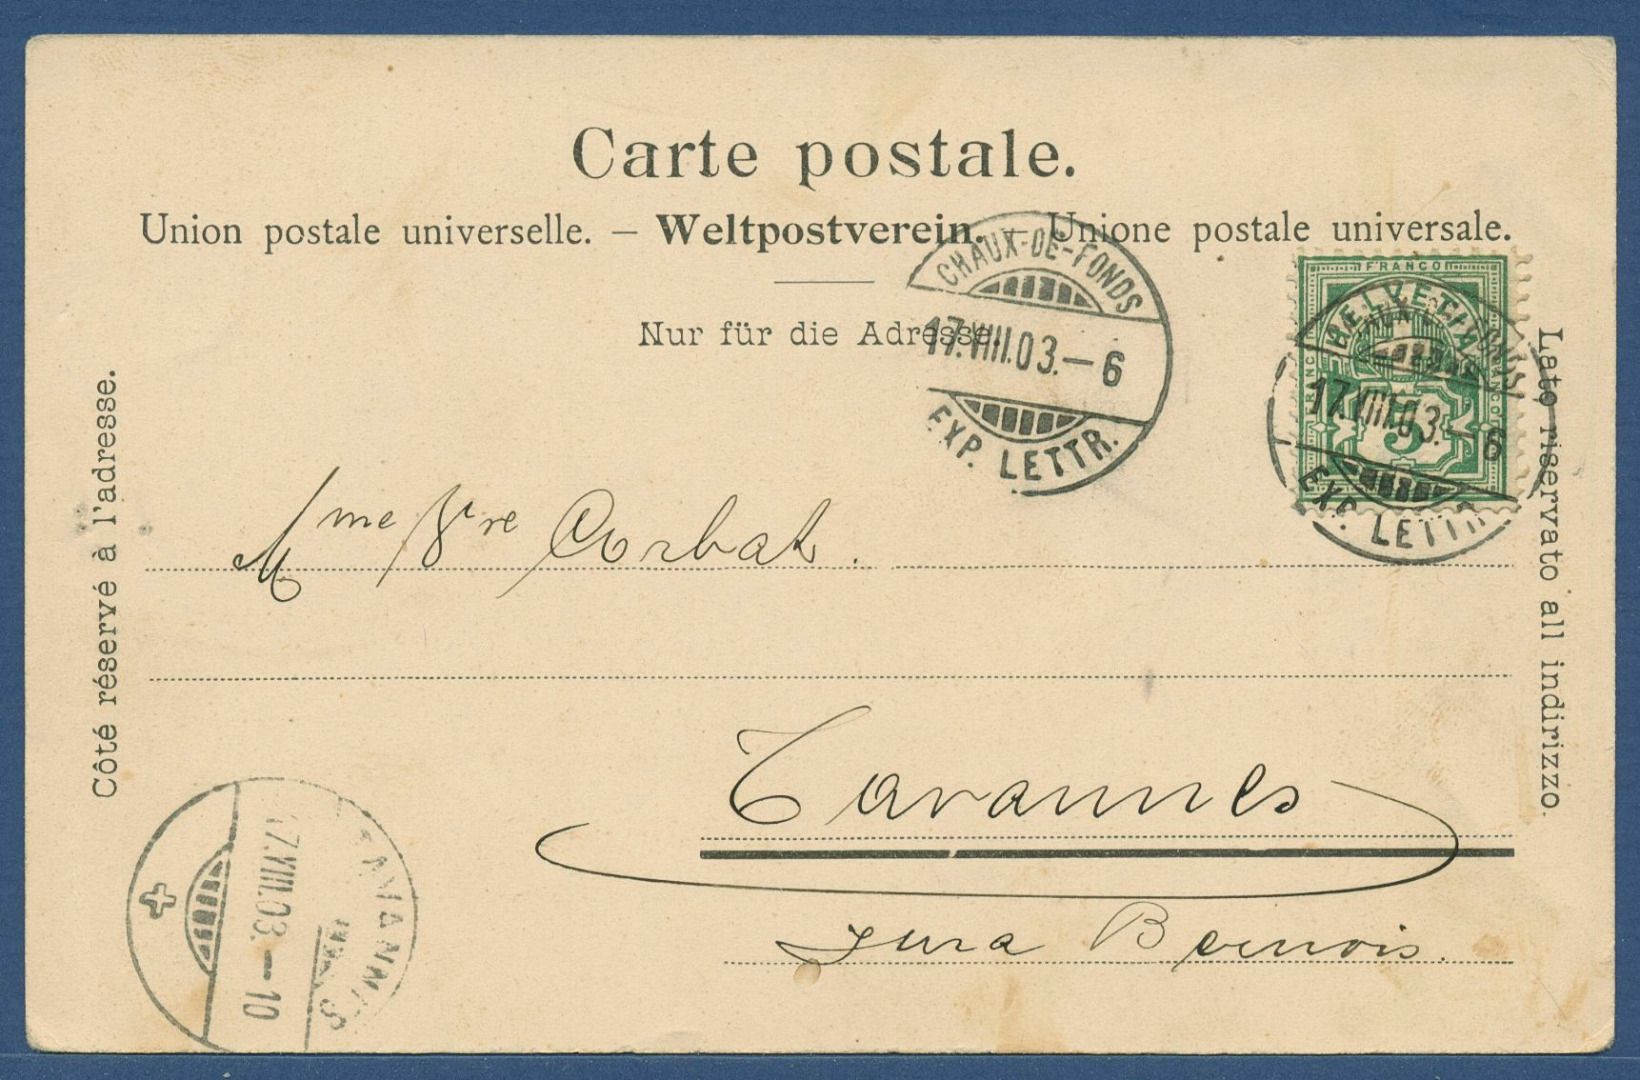 Carte postale.
Union postale universelle. — Weltpostverein. — Unione postale universale.
Nur für die Adresse.
CHAUX-DE-FONDS
17.VIII.03.–6
EXP. LETTR.
FRANCO
HELVETIA
FRANCO
FRANCO
5
17.VIII.03.–6
EXP. LETTR.
Côté réservé à l'adresse.
Lato riservato all indirizzo.
Mme Vve Corbat.
Tavannes
Jura Bernois.
TAVANNES
17.VIII.03.–10